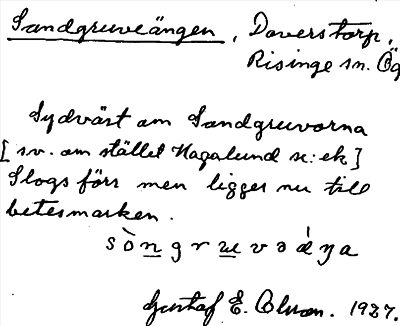 Sandgruveängen, Doverstorp,
Risinge sn. Ög
Sydväst om Sandgruvorna
[sv. om stället Hagalund sc: ek]
Slogs förr men ligger nu till
betesmarken.
sòngruvəáŋa
Gustaf E. Olsson. 1927.